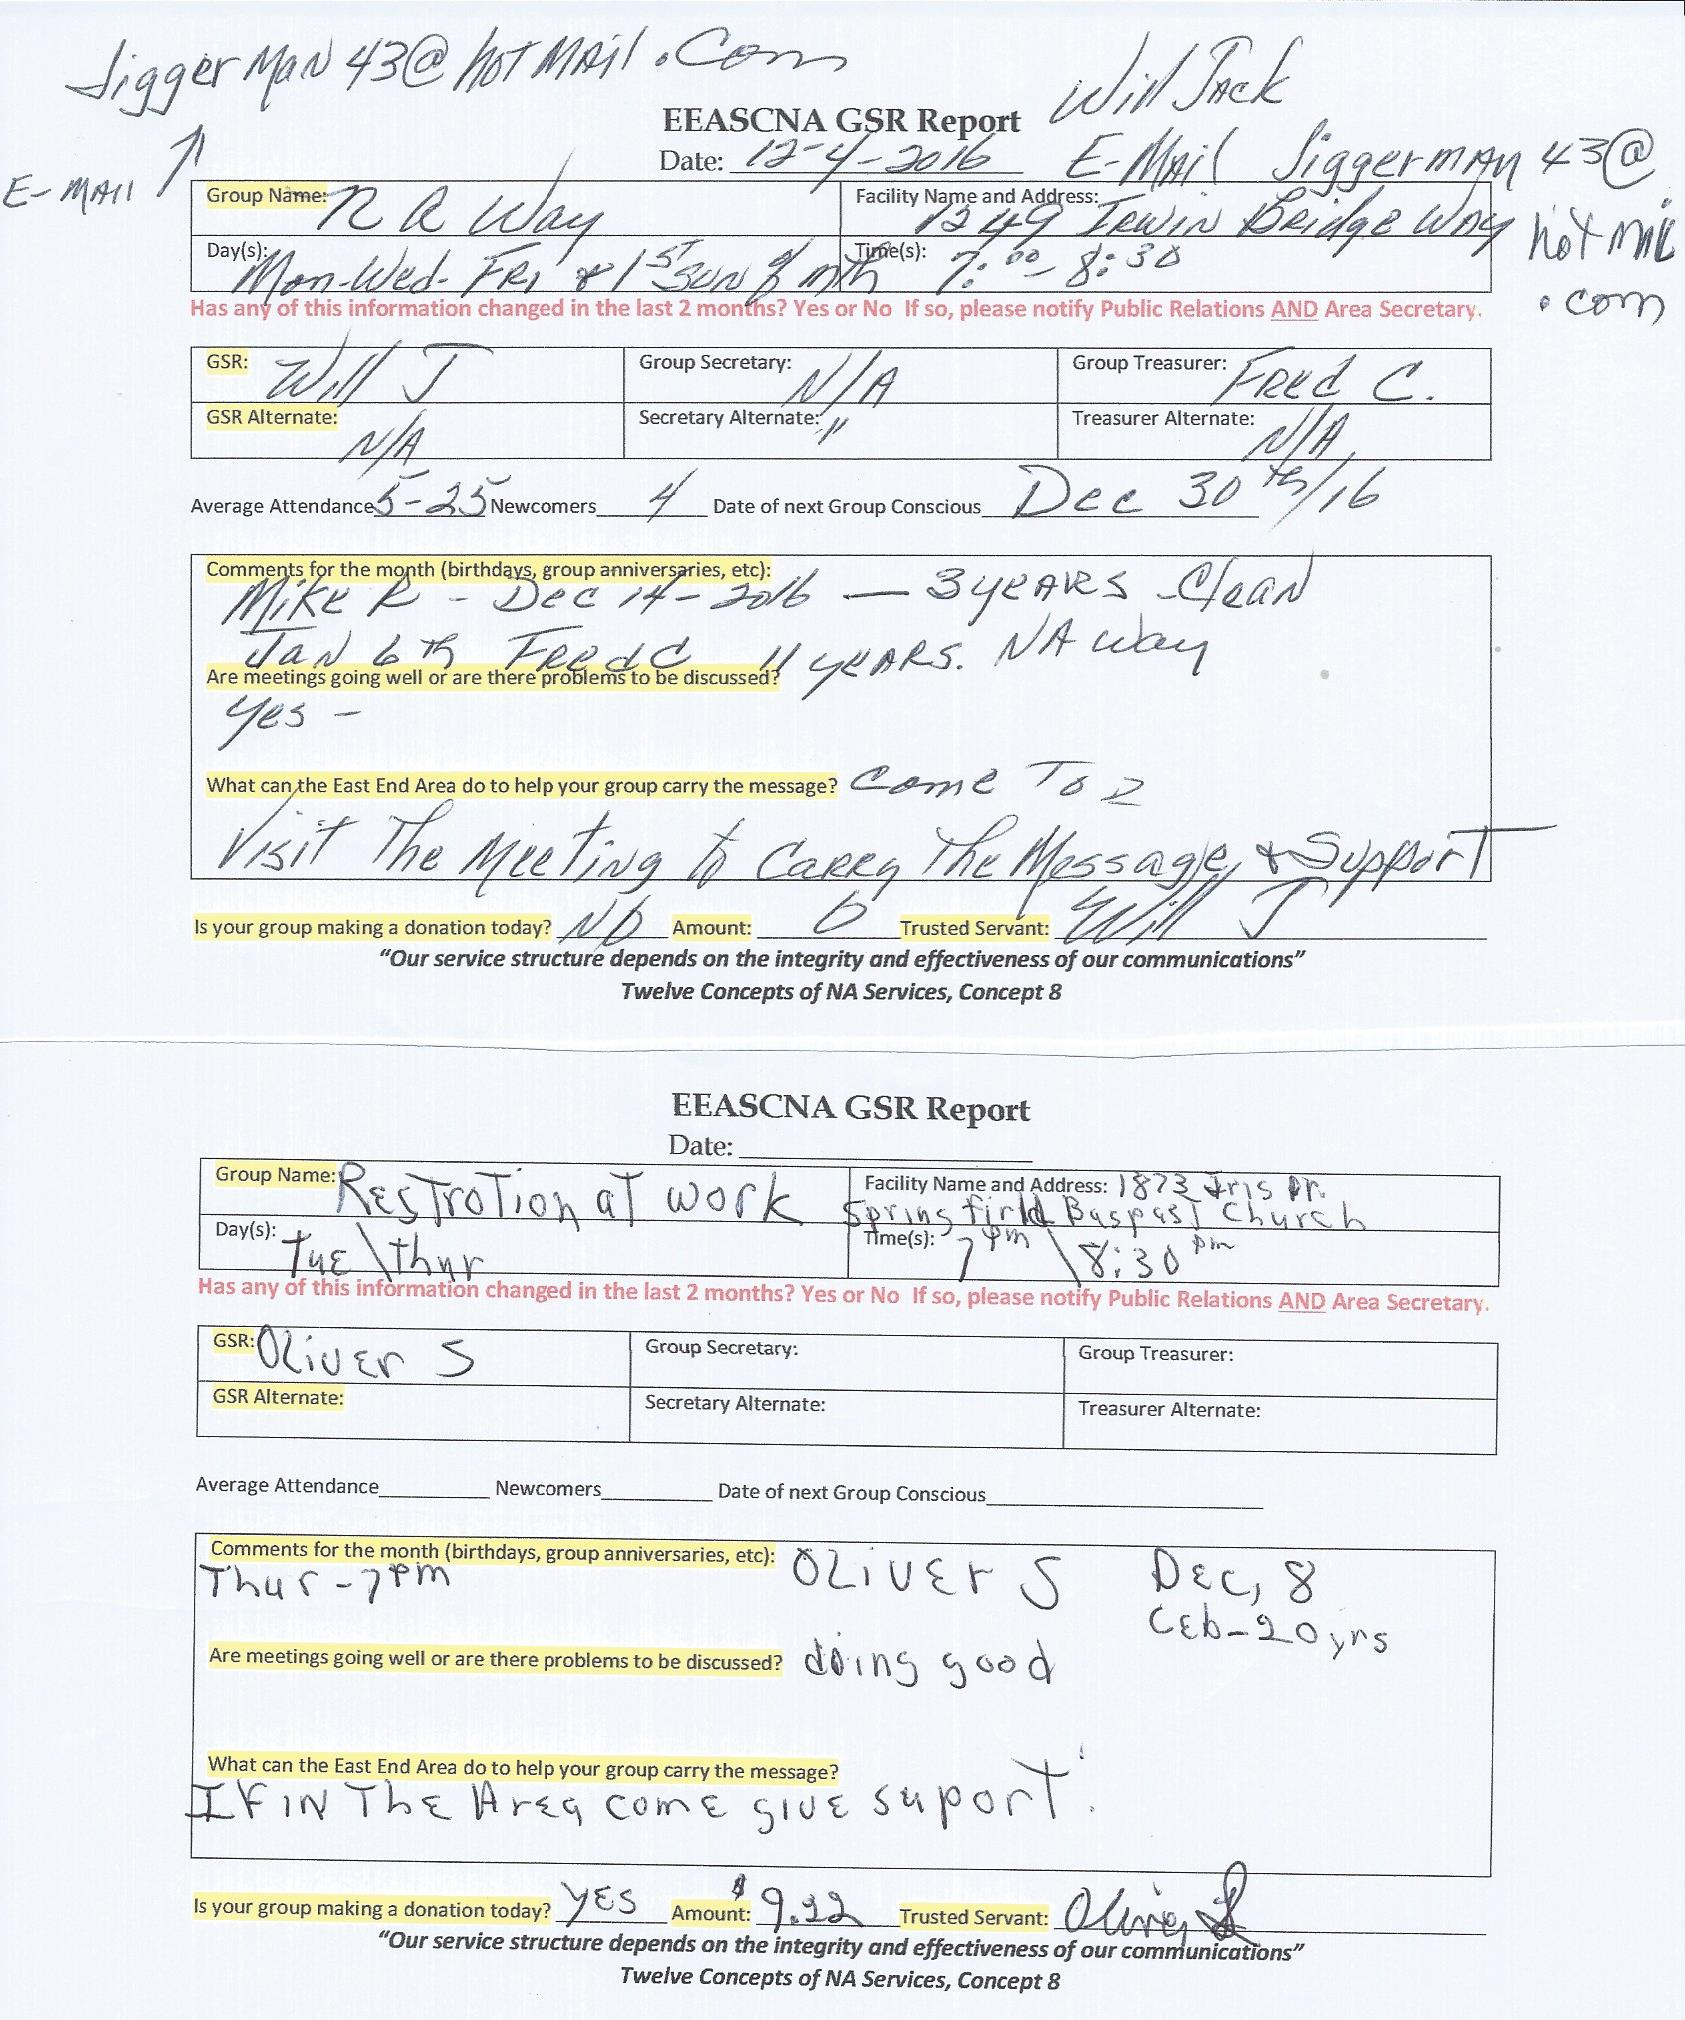 JiggerMan43@hotMail.Com
Will Jack
EEASCNA GSR Report
Date: 12-4-2016
E-Mail JiggermAn 43@
hotmail
.com
E-MAil
Group Name: N A Way
Facility Name and Address: 1249 Irwin Bridge Way
Day(s): Mon-Wed-FRi & 1ST SUN of mth
Time(s): 7:00-8:30
Has any of this information changed in the last 2 months? Yes or No If so, please notify Public Relations AND Area Secretary.
GSR: Will J
Group Secretary: N/A
Group Treasurer: FRed C.
GSR Alternate: N/A
Secretary Alternate: "
Treasurer Alternate: N/A
Average Attendance 5-25 Newcomers 4 Date of next Group Conscious Dec 30th/16
Comments for the month (birthdays, group anniversaries, etc):
Mike R - Dec 14-2016 — 3 yeARS Clean
JaN 6th FRed C 11 yeARS. NA Way
Are meetings going well or are there problems to be discussed?
yes -
What can the East End Area do to help your group carry the message? Come To
Visit The Meeting to CaRRy The Message, & SupporT
Is your group making a donation today? No Amount: 0 Trusted Servant: Will J
“Our service structure depends on the integrity and effectiveness of our communications”
Twelve Concepts of NA Services, Concept 8
EEASCNA GSR Report
Date:
Group Name: RESTroTion aT work
Facility Name and Address: 1873 Iris Dr.
Spring firld BaspasT Church
Day(s): TuE\Thur
Time(s): 7pm \8:30pm
Has any of this information changed in the last 2 months? Yes or No If so, please notify Public Relations AND Area Secretary.
GSR: OLiVEr S
Group Secretary:
Group Treasurer:
GSR Alternate:
Secretary Alternate:
Treasurer Alternate:
Average Attendance Newcomers Date of next Group Conscious
Comments for the month (birthdays, group anniversaries, etc): OLiVEr S DEC, 8
Thur-7pm
CEb-20yrs
Are meetings going well or are there problems to be discussed? doing good
What can the East End Area do to help your group carry the message?
IF IN ThE ArEa comE giVE suporT.
Is your group making a donation today? YES Amount: $9.22 Trusted Servant: Oliver S
“Our service structure depends on the integrity and effectiveness of our communications”
Twelve Concepts of NA Services, Concept 8